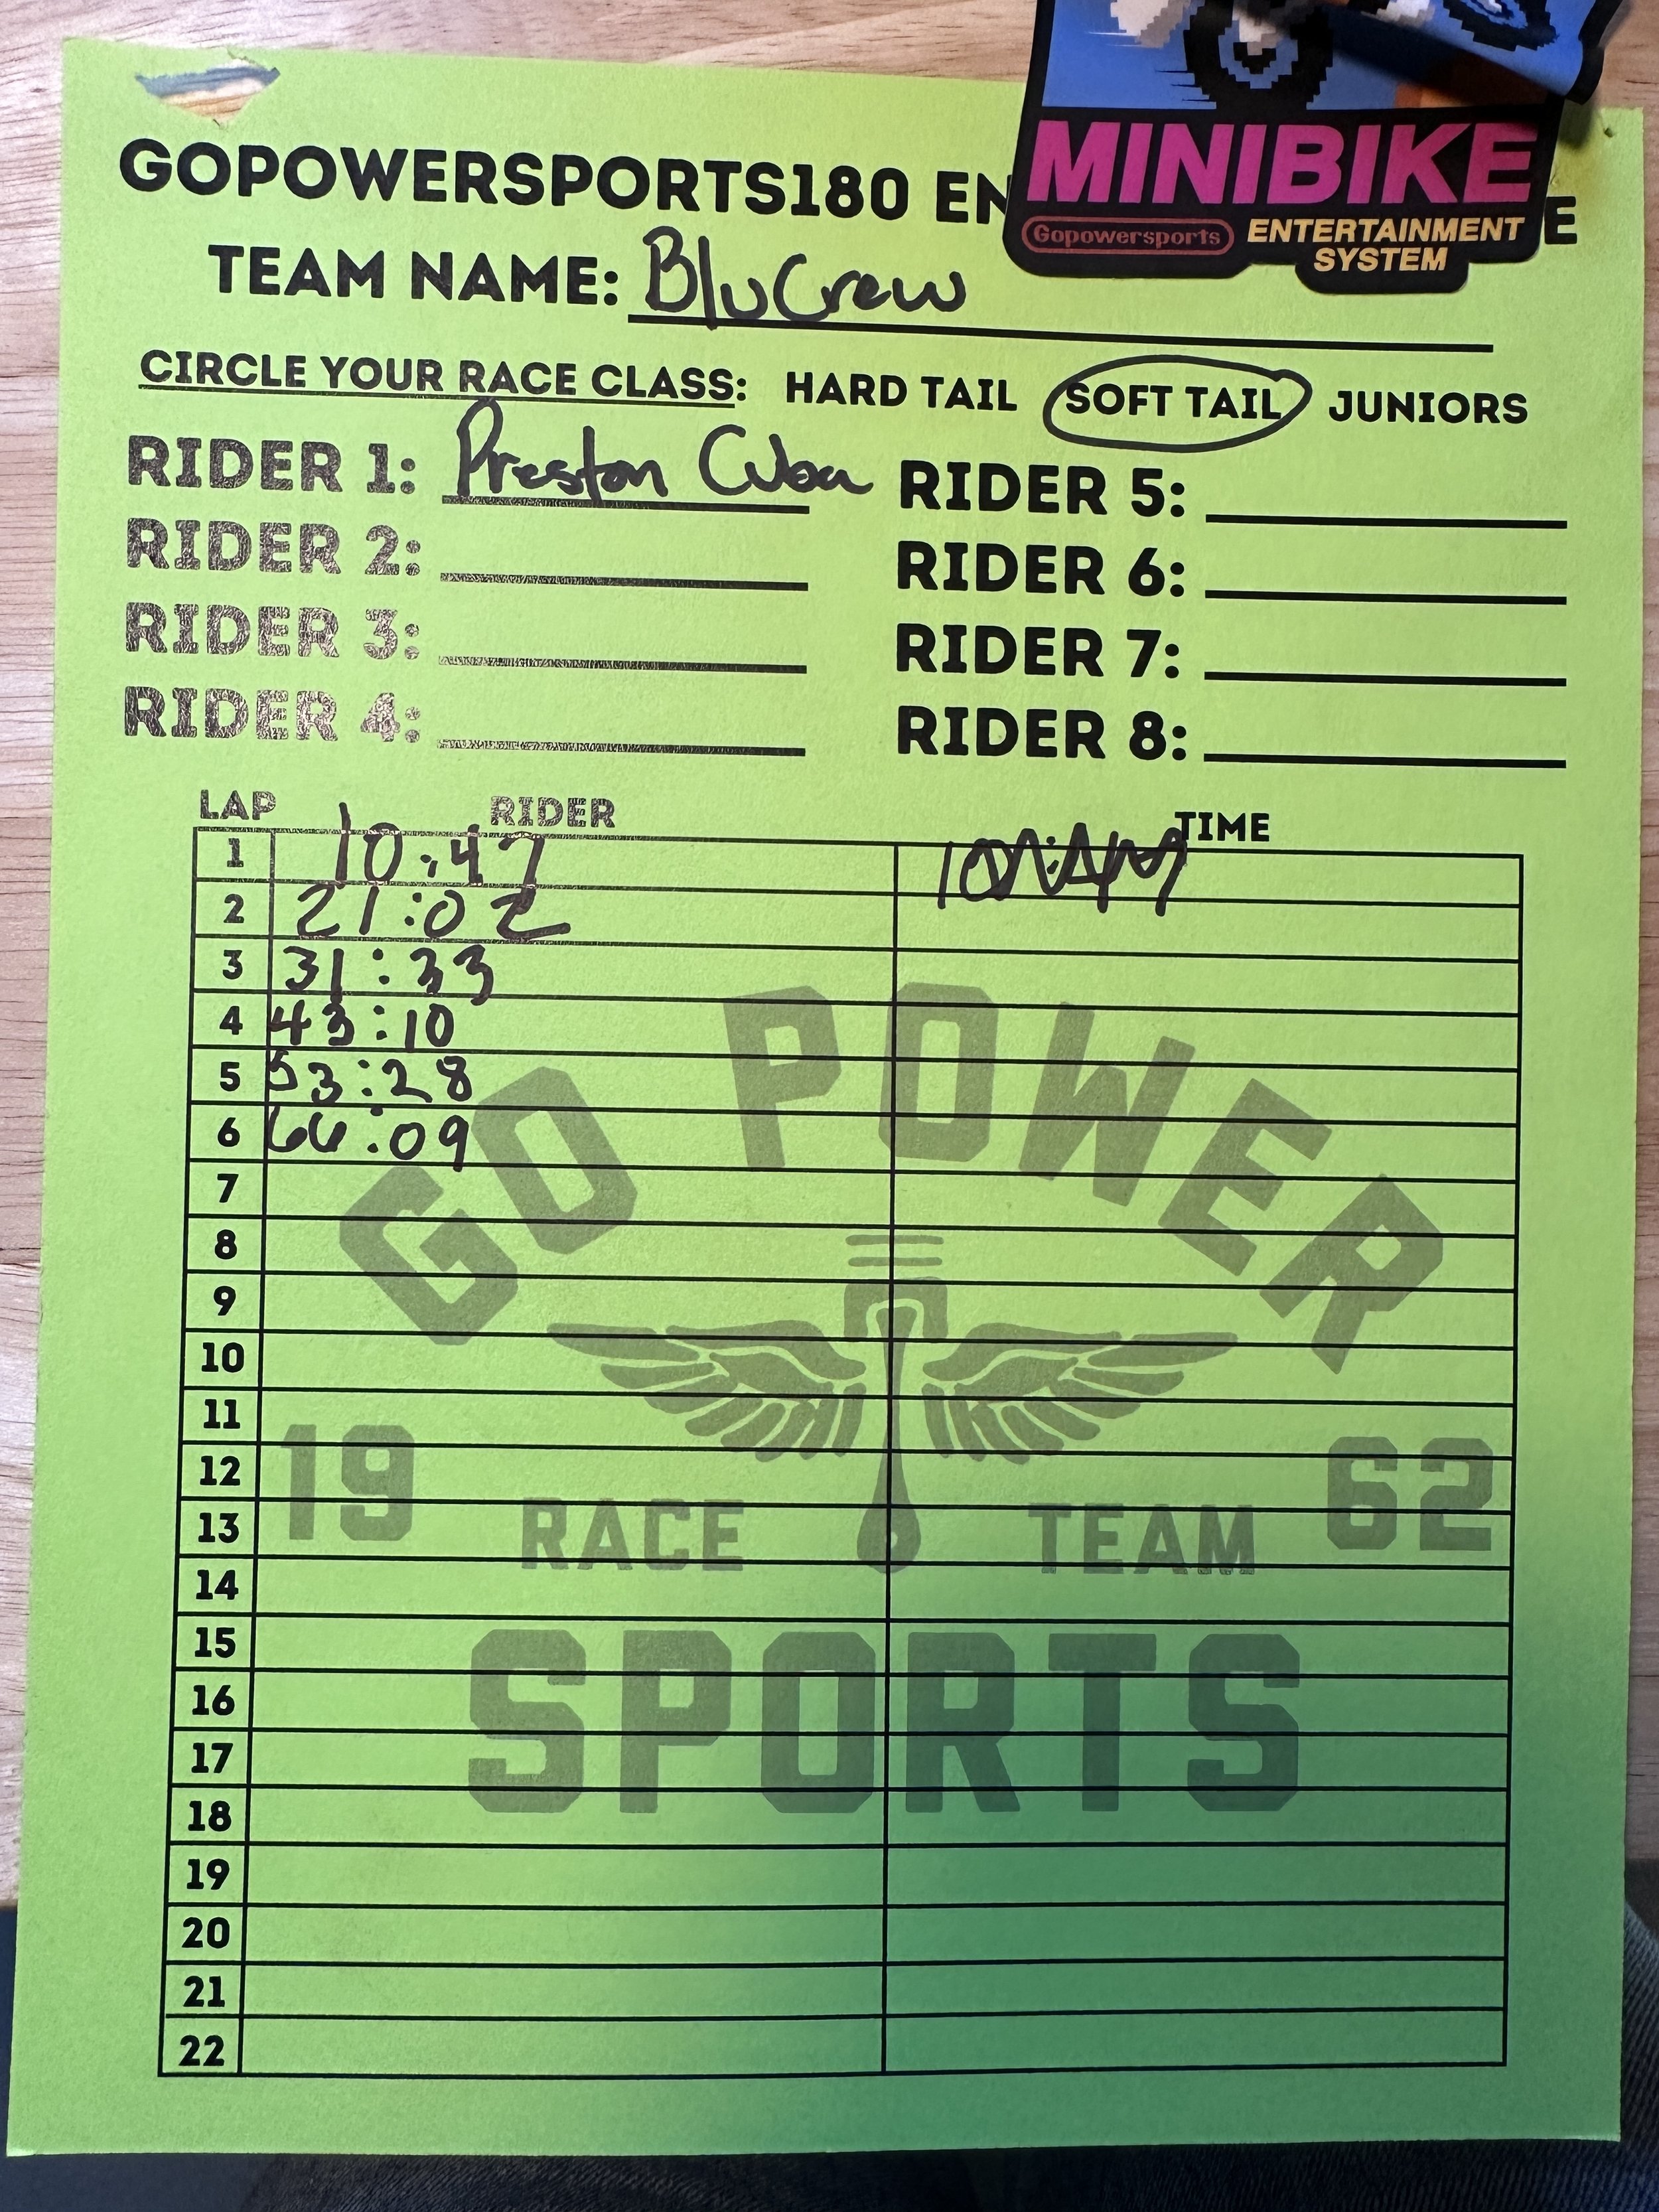 GOPOWERSPORTS180 EN E
MINIBIKE
Gopowersports ENTERTAINMENT SYSTEM
TEAM NAME: BluCrew
CIRCLE YOUR RACE CLASS: HARD TAIL SOFT TAIL JUNIORS
RIDER 1: Preston Cuba RIDER 5:
RIDER 2: RIDER 6:
RIDER 3: RIDER 7:
RIDER 4: RIDER 8:
LAP RIDER TIME
1 10:47
2 21:02
3 31:33
4 43:10
5 53:28
6 66:09
7
8
9
10
11
12
13
14
15
16
17
18
19
20
21
22
GO POWER
19 RACE TEAM 62
SPORTS